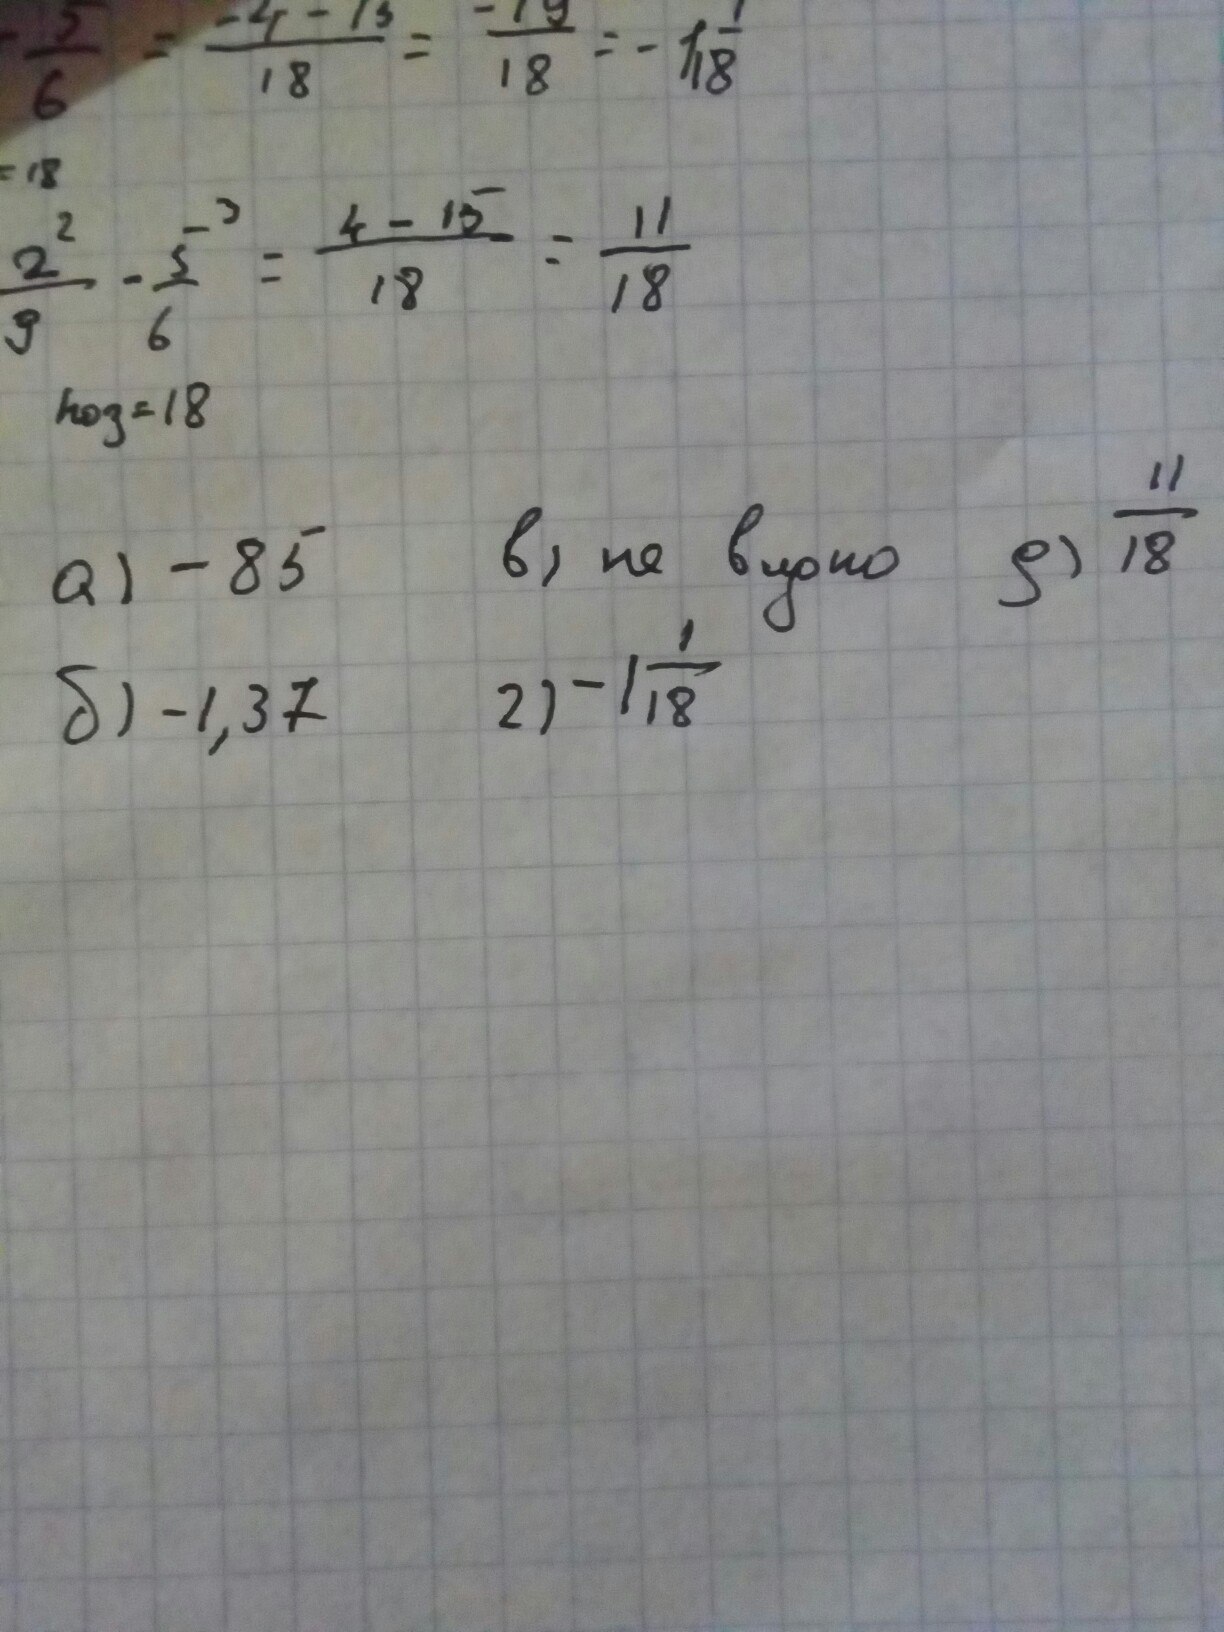 - 5/6 = -4-15/18 = -19/18 = -1 1/18
=18
2²/9 - 5³/6 = 4-15/18 = 11/18
ноз=18
а) -85 в) не видно д) 11/18
б) -1,37 г) -1 1/18